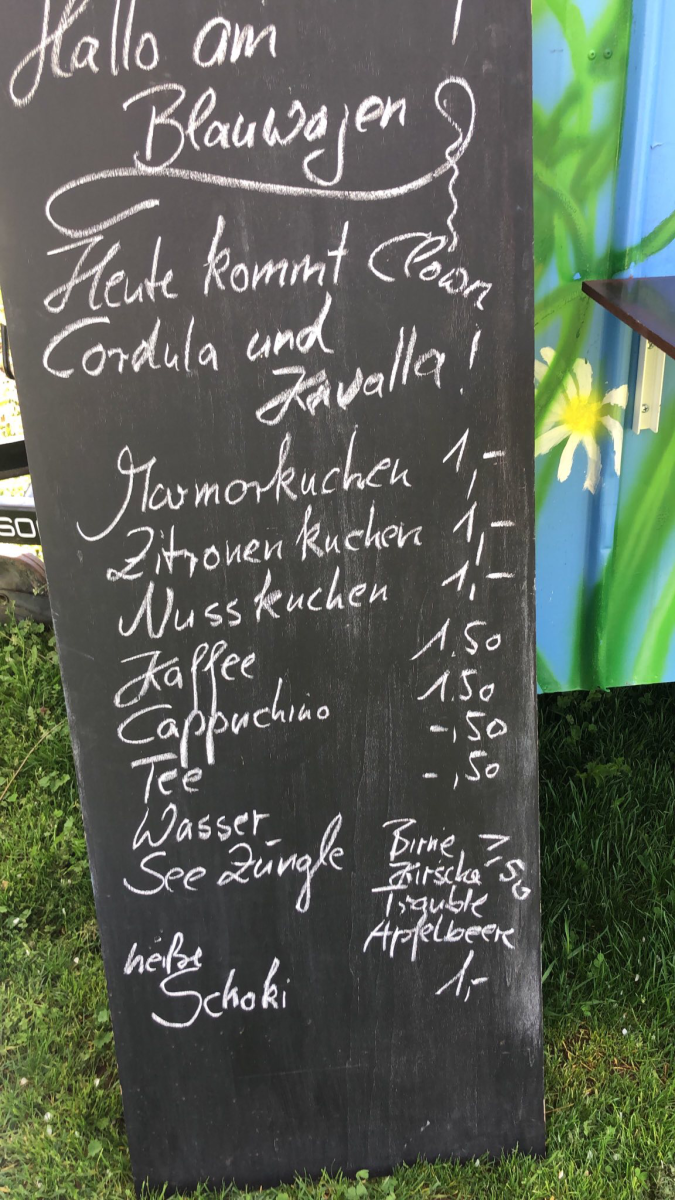 Hallo am !
Blauwagen
Heute kommt Clown
Cordula und
Kavalla!
Marmorkuchen 1,-
Zitronenkuchen 1,-
Nusskuchen 1,-
Kaffee 1.50
Cappuchino 1.50
Tee -,50
Wasser -,50
See Züngle Birne 1,50
Kirsche
Trauble
Apfelbeere
heiße
Schoki 1,-